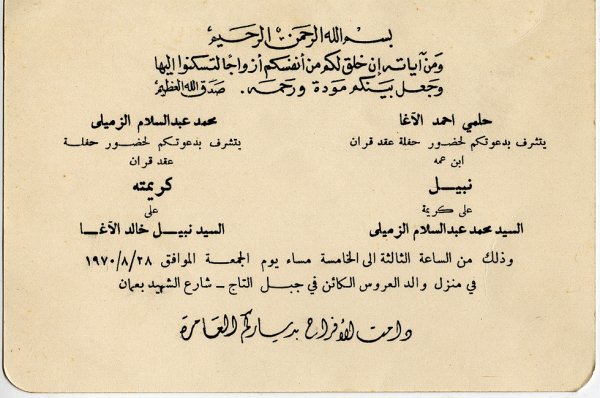 بسم الله الرحمن الرحيم
ومن آياته إن خلق لكم من أنفسكم أزواجا لتسكنوا إليها
وجعل بينكم مودة ورحمه . صدق الله العظيم
حلمي احمد الآغا
يتشرف بدعوتكم لحضور حفلة عقد قران
ابن عمه
نبيــل
على كريمة
السيد محمد عبدالسلام الزميلى
محمد عبدالسلام الزميلى
يتشرف بدعوتكم لحضور حفلة
عقد قران
كريمته
على
السيد نبيل خالد الآغا
وذلك من الساعة الثالثة الى الخامسة مساء يوم الجمعة الموافق ١٩٧٠/٨/٢٨
في منزل والد العروس الكائن في جبل التاج – شارع الشهيد بعمان
دامت الأفراح بدياركم العامرة